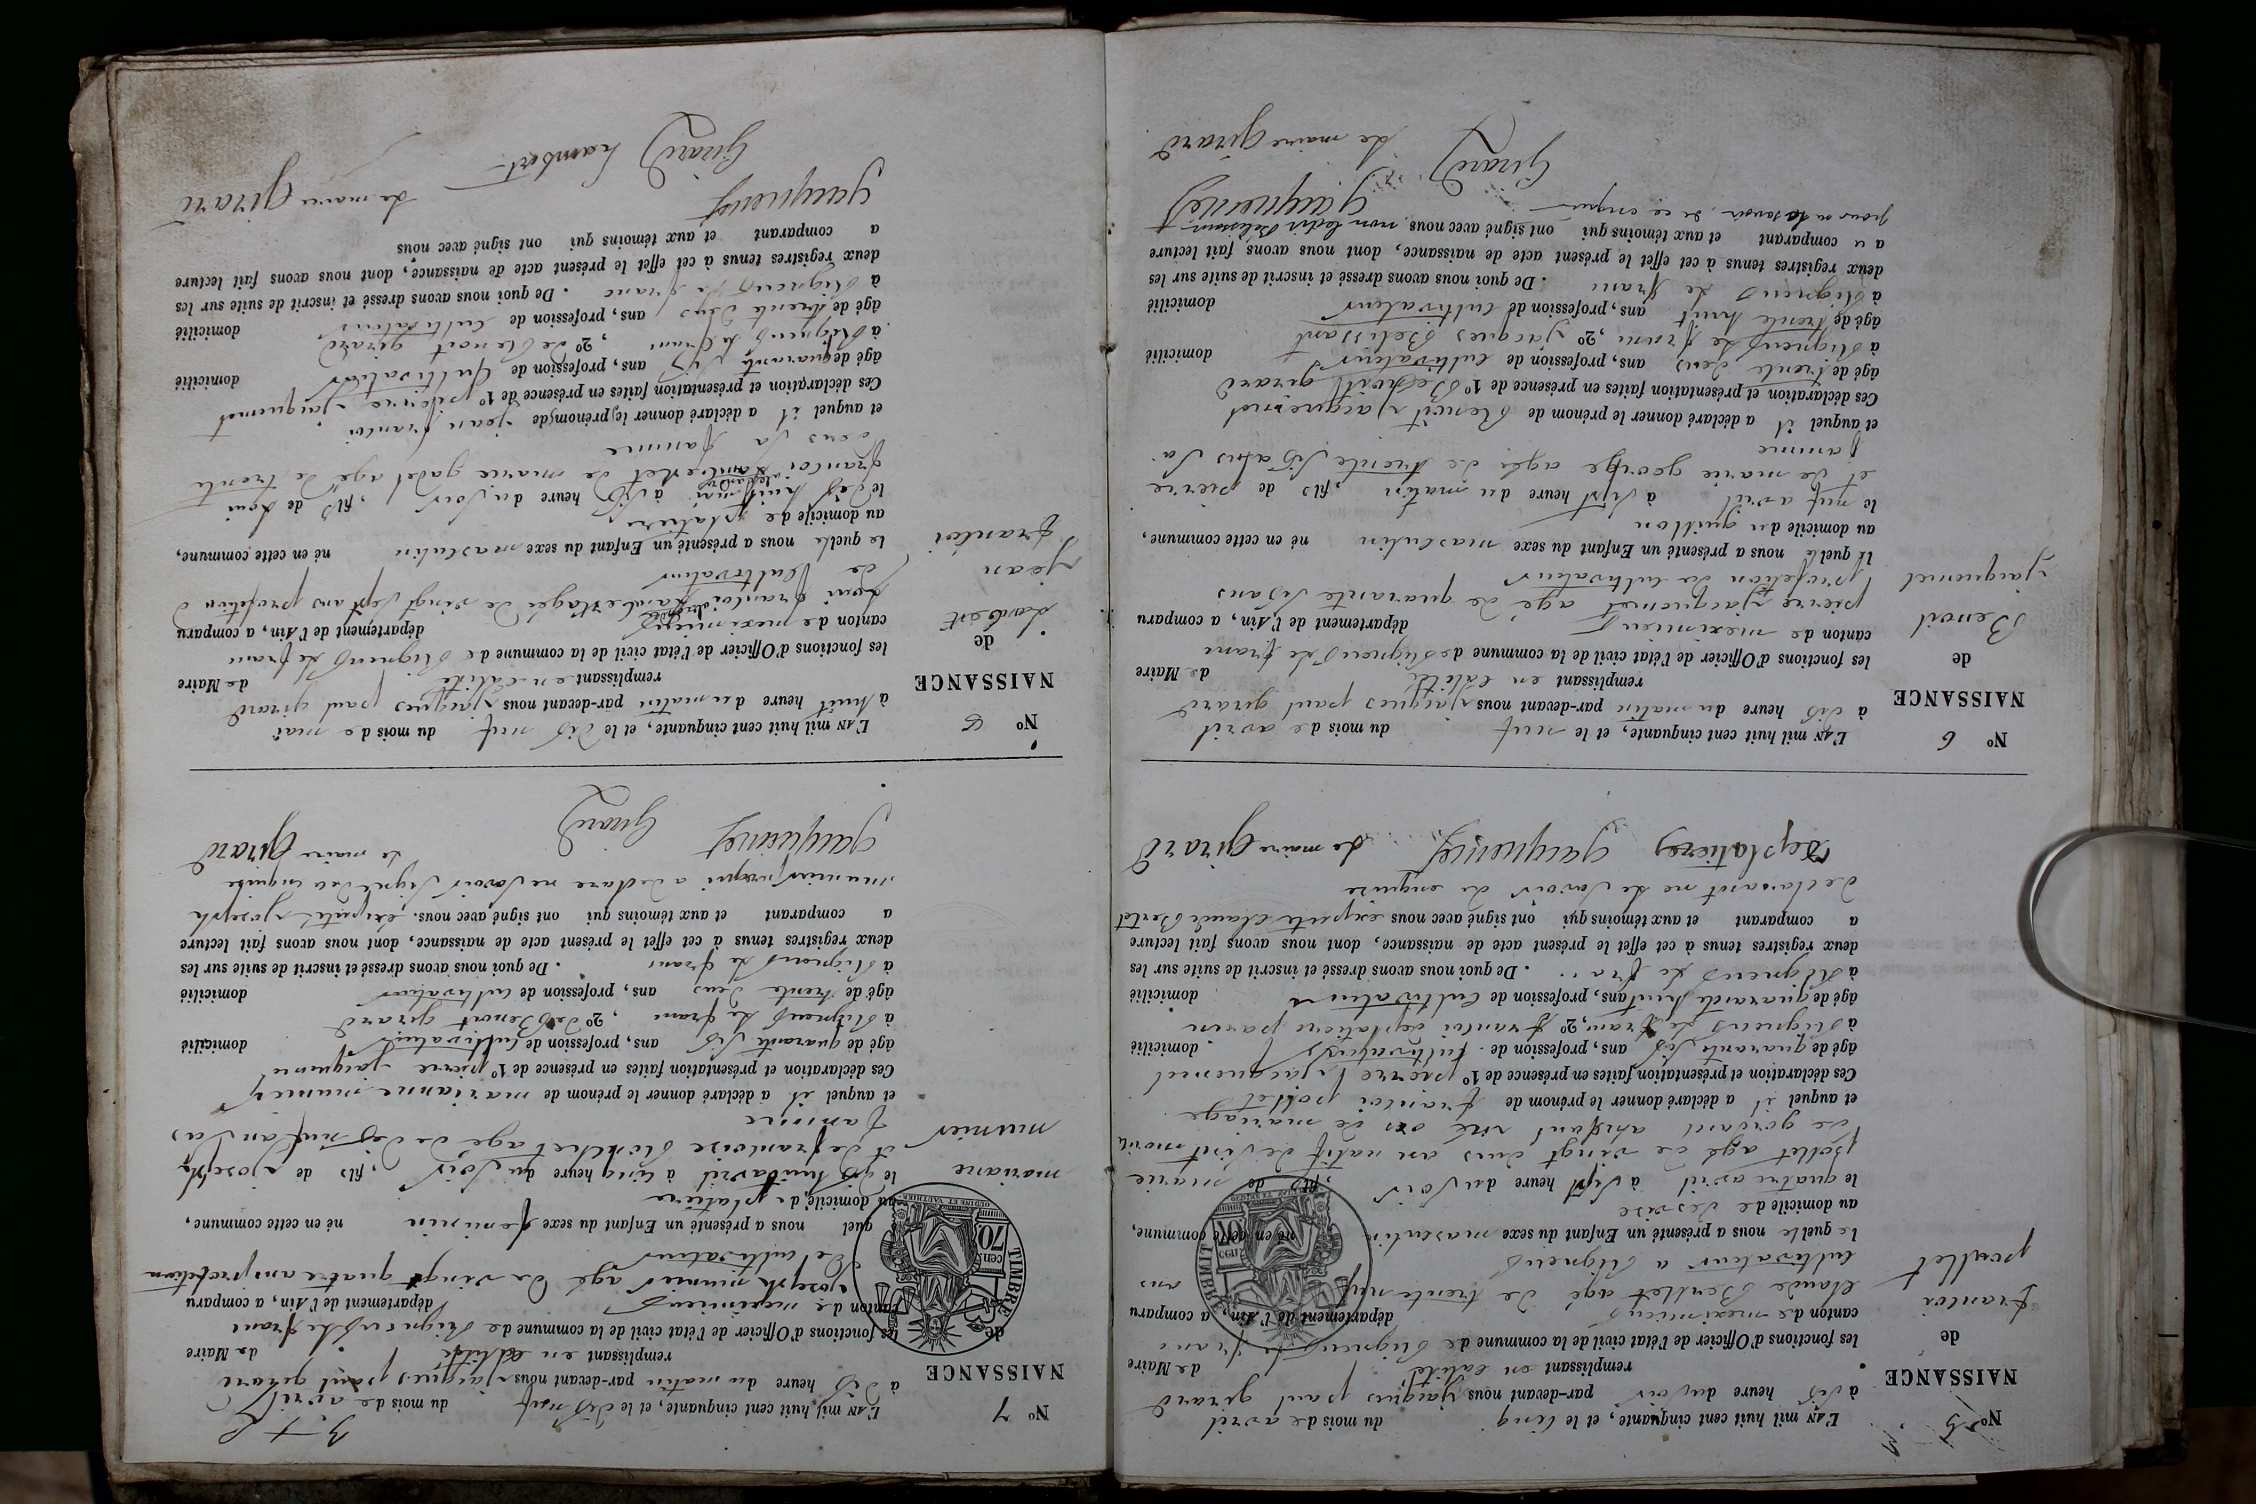 N° 5
NAISSANCE
de
francoi
pollet
L'AN mil huit cent cinquante, et le cinq du mois de avril
à six heure du soir par-devant nous jacques paul girard
remplissant en calité de Maire
les fonctions d'Officier de l'état civil de la commune de Rigneux le franc
canton de meximieux département de l'Ain, a comparu
Claude Berllet agé de trente neuf ans
Cultivateur a Rigneux
le quelle nous a présenté un Enfant du sexe masculin né en cette commune,
au domicile de
le quatre avril à sept heure du soir, fils de marie
pollet agé de vingt deus an natif de
de mariage
et auquel il a déclaré donner le prénom de francoi pollet
Ces déclaration et présentation faites en présence de 1° pierre jacquemet
âgé de quarante six ans, profession de Cultivateur domicilié
à Rigneux le franc, 2° francoi deplatiere
âgé de quarante huit ans, profession de Cultivateur domicilié
à Rigneux le franc. De quoi nous avons dressé et inscrit de suite sur les
deux registres tenus à cet effet le présent acte de naissance, dont nous avons fait lecture
a comparant et aux témoins qui ont signé avec nous exepté Claude Berlet
declarant ne le savoir de enquise
Deplatieres Jacquemet Le maire Girard
N° 6
NAISSANCE
de
Benoit
jaiquemet
L'AN mil huit cent cinquante, et le neuf du mois de avril
à dix heure du matin par-devant nous jacques paul girard
remplissant en calité de Maire
les fonctions d'Officier de l'état civil de la commune de Rigneux le franc
canton de meximieux département de l'Ain, a comparu
pierre jacquemet agé de quarante six ans
profetion de Cultivateur
le quelle nous a présenté un Enfant du sexe masculin né en cette commune,
au domicile du guillon
le neuf avril à sept heure du matin, fils de pierre
et de marie george agée de trente six ans sa
famme
et auquel il a déclaré donner le prénom de Benoit jacquemet
Ces déclaration et présentation faites en présence de 1° girard
âgé de trente deus ans, profession de Cultivateur domicilié
à Rigneux le franc, 2° jacques Belissant
âgé de trente huit ans, profession de Cultivateur domicilié
à Rigneux le franc. De quoi nous avons dressé et inscrit de suite sur les
deux registres tenus à cet effet le présent acte de naissance, dont nous avons fait lecture
au comparant et aux témoins qui ont signé avec nous non ledit Belissant
pour ne le savoir de ce enquis
Jacquemet
Girard Le maire Girard
N° 7
NAISSANCE
de
mariane
munier
L'AN mil huit cent cinquante, et le dix neuf du mois de avril
à dix heure du matin par-devant nous jacques paul girard
remplissant en calité de Maire
les fonctions d'Officier de l'état civil de la commune de Rigneux le franc
canton de meximieux département de l'Ain, a comparu
joseph munier agé de vingt quatre ans profetion
de Cultivateur
quel nous a présenté un Enfant du sexe feminin né en cette commune,
au domicile de platiere
le dix huit avril à cinq heure du soir, fils de joseph
et de francoise agé de dix neuf an sa
famme
et auquel il a déclaré donner le prénom de marianne munier
Ces déclaration et présentation faites en présence de 1° pierre jaiquemet
âgé de quarante six ans, profession de Cultivateur domicilié
à Rigneux le franc, 2° de Benoit girard
âgé de trente deus ans, profession de Cultivateur domicilié
à Rigneux le franc. De quoi nous avons dressé et inscrit de suite sur les
deux registres tenus à cet effet le présent acte de naissance, dont nous avons fait lecture
a comparant et aux témoins qui ont signé avec nous. exepté joseph
munier qui a declare ne savoir signé
Jacquemet Girard Le maire Girard
TIMBRE
70 cent
N° 8
NAISSANCE
de
Lambert
jean
francoi
L'AN mil huit cent cinquante, et le dix neuf du mois de mai
à huit heure du matin par-devant nous jacques paul girard
remplissant en calité de Maire
les fonctions d'Officier de l'état civil de la commune de Rigneux le franc
canton de meximieux département de l'Ain, a comparu
Loui francoi Lambert agé de vingt sept ans profetion
de Cultivateur
le quelle nous a présenté un Enfant du sexe masculin né en cette commune,
au domicile de platiere
le dix huit mai à six heure du soir, fils de Loui
francoi Lambert et de marie gadet agé de trente
deus sa famme
et auquel il a déclaré donner les prénoms de jean francoi
Ces déclaration et présentation faites en présence de 1° pierre jaiquemet
âgé de quarante six ans, profession de Cultivateur domicilié
à Rigneux le franc, 2° de Benoit girard
âgé de trente deus ans, profession de Cultivateur domicilié
à Rigneux le franc. De quoi nous avons dressé et inscrit de suite sur les
deux registres tenus à cet effet le présent acte de naissance, dont nous avons fait lecture
a comparant et aux témoins qui ont signé avec nous
Jacquemet Le maire Girard
Girard Lambert